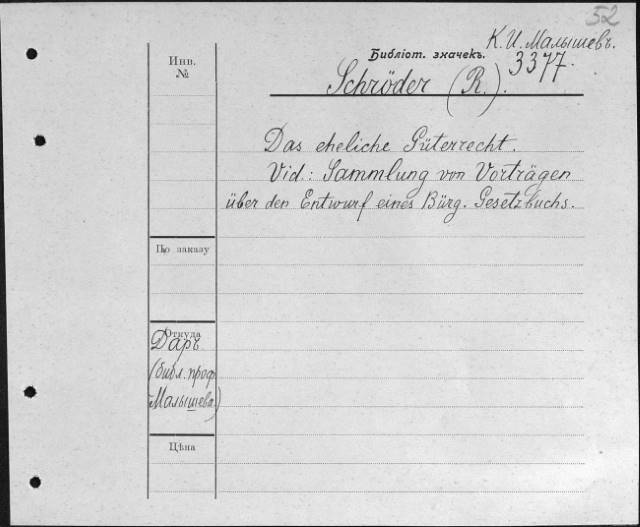 52
К. И. Малышевъ.
Инв. №
Библіот. значекъ.
3377.
Schröder (R.).
Das eheliche Güterrecht.
Vid: Sammlung von Vorträgen
über den Entwurf eines Bürg. Gesetzbuchs.
По заказу
Откуда
Даръ
(библ. проф.
Малышева)
Цѣна